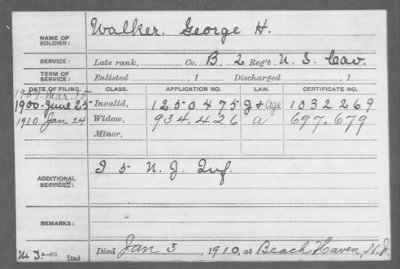 NAME OF SOLDIER: Walker, George H.
SERVICE: Late rank, Co. B, 2 Reg't U. S. Cav.
TERM OF SERVICE: Enlisted , 1 Discharged , 1
DATE OF FILING. CLASS. APPLICATION NO. LAW. CERTIFICATE NO.
1907-Mar. 15
1900-June 25 Invalid, 1250475 G & Age 1032269
1910 Jan. 24 Widow, 934.426 a 697.679
Minor,
ADDITIONAL SERVICES: I 5 N. J. Inf.
REMARKS:
Died Jan 3, 1910, at Beach Haven, N.J.